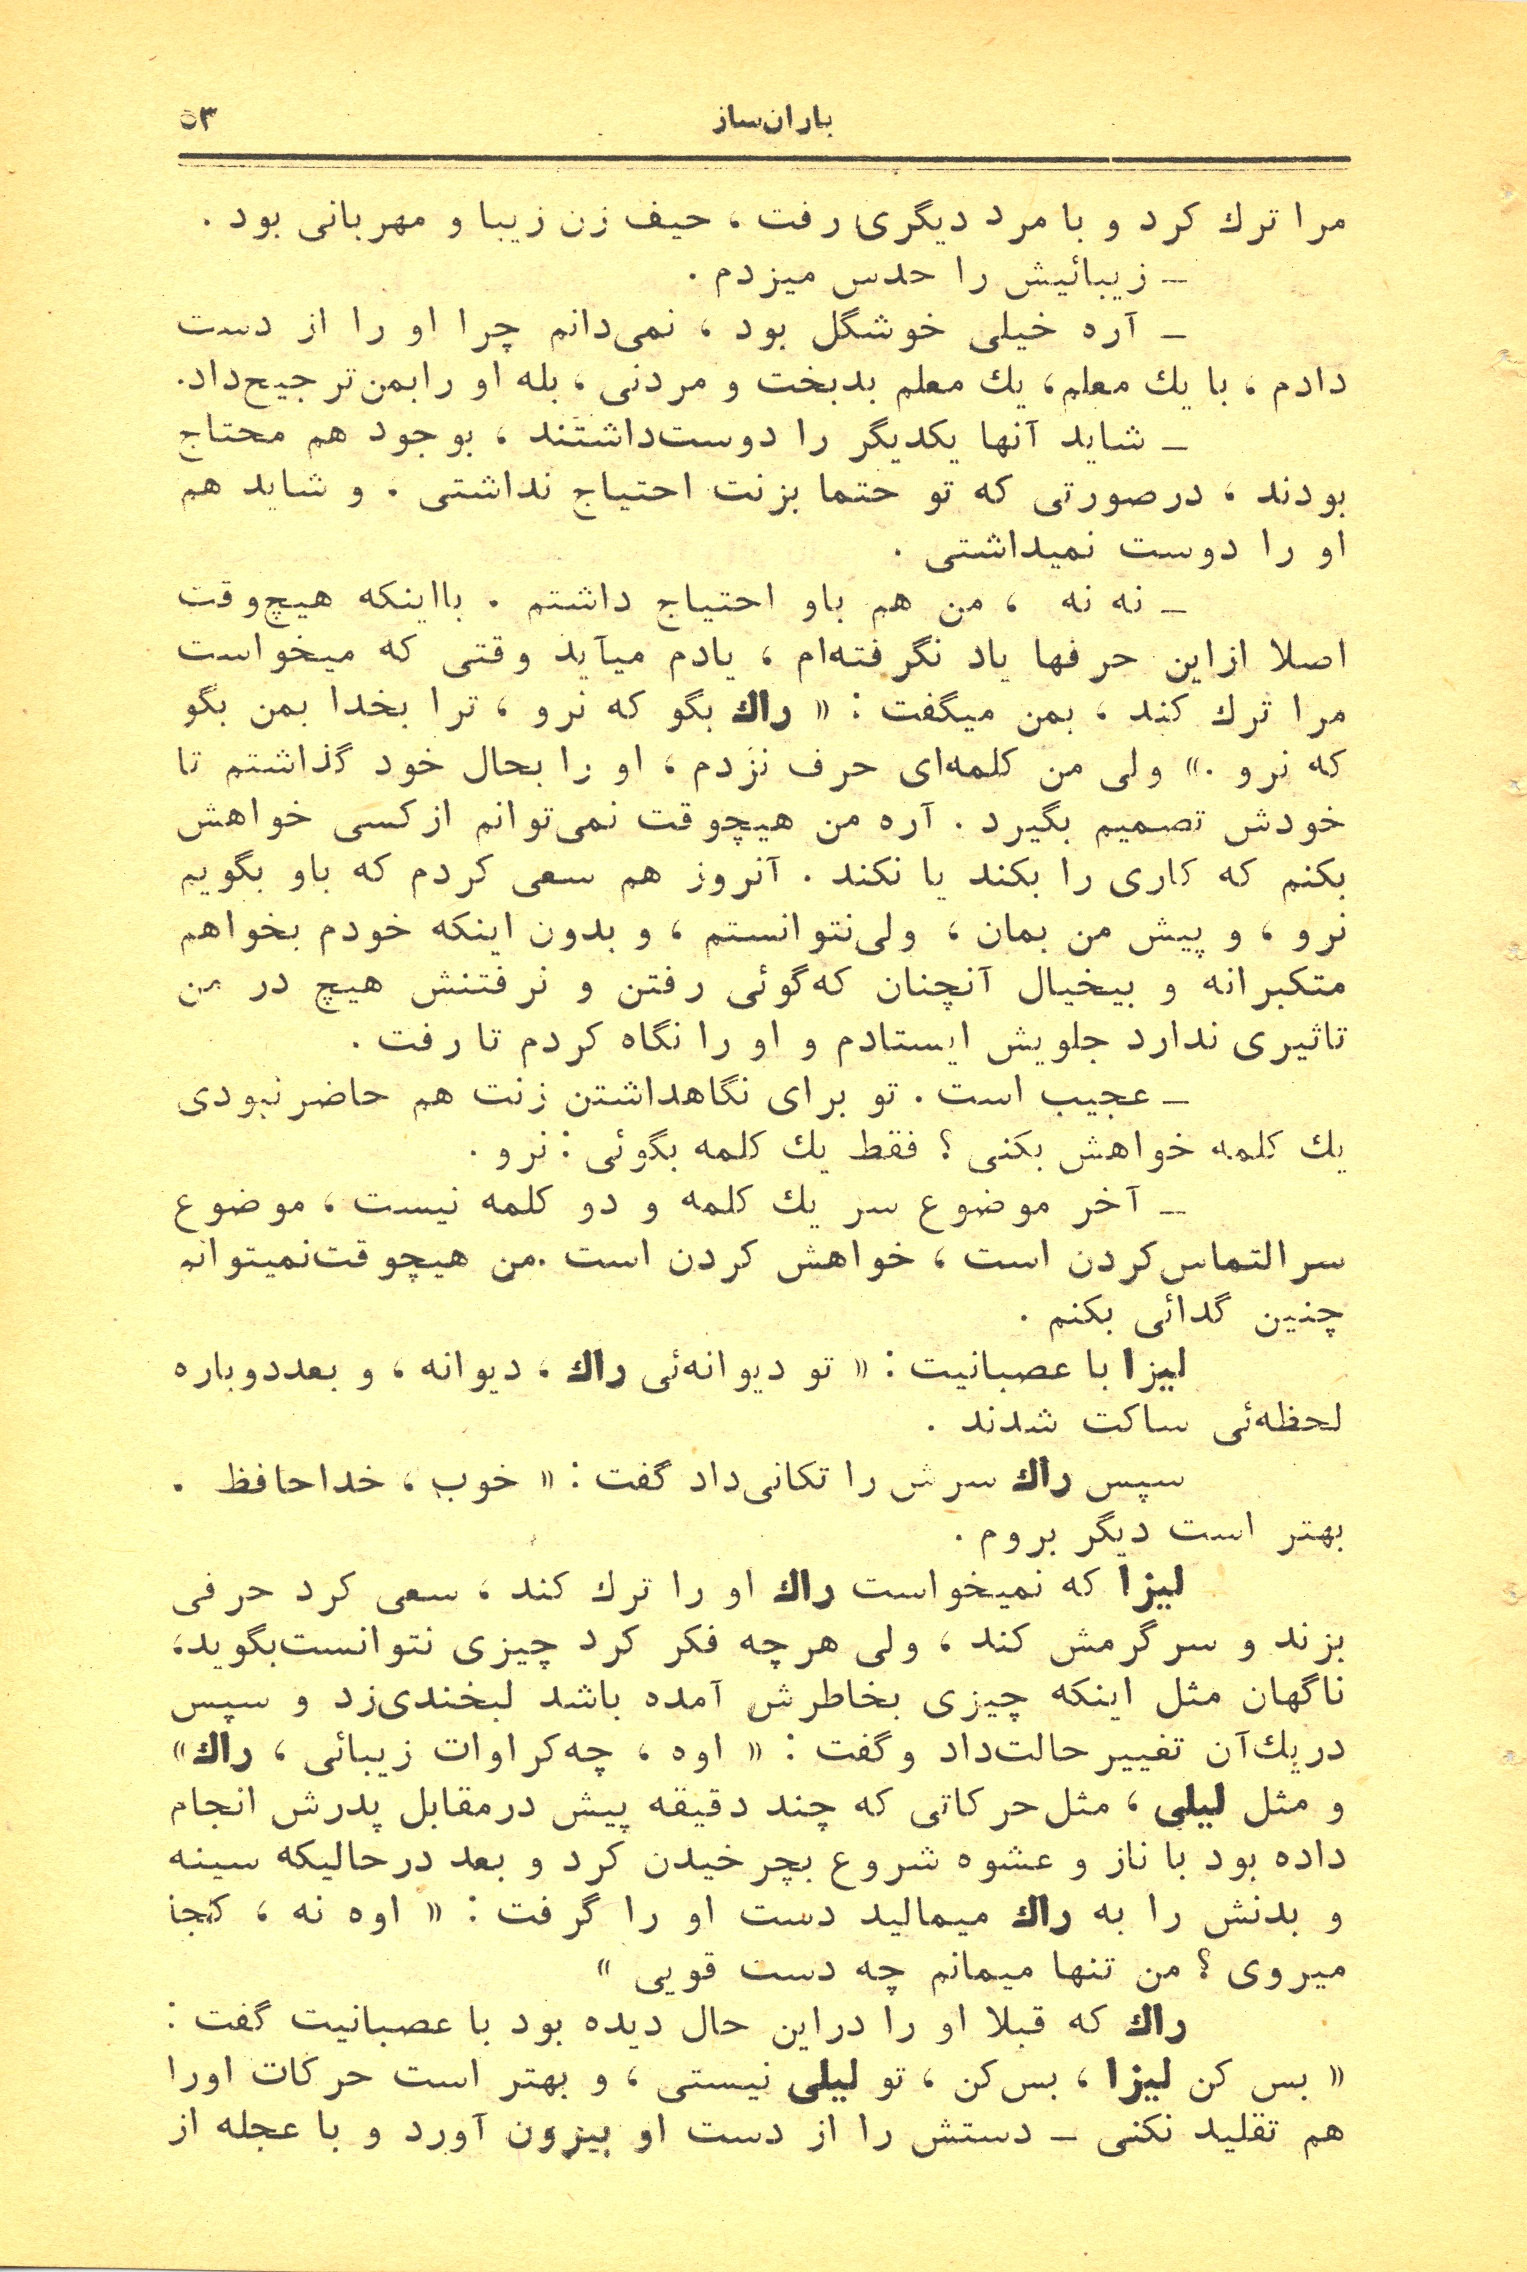 باران‌ساز ۵۳
مرا ترك كرد و با مرد دیگری رفت ، حیف زن زیبا و مهربانی بود .
ـ زیبائیش را حدس میزدم .
ـ آره خیلی خوشگل بود ، نمی‌دانم چرا او را از دست
دادم ، با یك معلم، یك معلم بدبخت و مردنی ، بله او رابمن‌ترجیح‌داد.
ـ شاید آنها یكدیگر را دوست‌داشتند ، بوجود هم محتاج
بودند ، درصورتی كه تو حتما بزنت احتیاج نداشتی . و شاید هم
او را دوست نمیداشتی .
ـ نه نه ، من هم باو احتیاج داشتم . بااینكه هیچ‌وقت
اصلا ازاین حرفها یاد نگرفته‌ام ، یادم میآید وقتی كه میخواست
مرا ترك كند ، بمن میگفت : « راك بگو كه نرو ، ترا بخدا بمن بگو
كه نرو .» ولی من كلمه‌ای حرف نزدم ، او را بحال خود گذاشتم تا
خودش تصمیم بگیرد . آره من هیچوقت نمی‌توانم ازكسی خواهش
بكنم كه كاری را بكند یا نكند . آنروز هم سعی كردم كه باو بگویم
نرو ، و پیش من بمان ، ولی‌نتوانستم ، و بدون اینكه خودم بخواهم
متكبرانه و بیخیال آنچنان كه‌گوئی رفتن و نرفتنش هیچ در من
تاثیری ندارد جلویش ایستادم و او را نگاه كردم تا رفت .
ـ عجیب است . تو برای نگاهداشتن زنت هم حاضر نبودی
یك كلمه خواهش بكنی ؟ فقط یك كلمه بگوئی : نرو .
ـ آخر موضوع سر یك كلمه و دو كلمه نیست ، موضوع
سر التماس‌كردن است ، خواهش كردن است .من هیچوقت‌نمیتوانم
چنین گدائی بكنم .
لیزا با عصبانیت : « تو دیوانه‌ئی راك ، دیوانه ، و بعددوباره
لحظه‌ئی ساكت شدند .
سپس راك سرش را تكانی‌داد گفت : « خوب ، خداحافظ .
بهتر است دیگر بروم .
لیزا كه نمیخواست راك او را ترك كند ، سعی كرد حرفی
بزند و سرگرمش كند ، ولی هرچه فكر كرد چیزی نتوانست‌بگوید،
ناگهان مثل اینكه چیزی بخاطرش آمده باشد لبخندی‌زد و سپس
دریك‌آن تغییرحالت‌داد وگفت : « اوه ، چه‌كراوات زیبائی ، راك»
و مثل لیلی ، مثل‌حركاتی كه چند دقیقه پیش درمقابل پدرش انجام
داده بود با ناز و عشوه شروع بچرخیدن كرد و بعد درحالیكه سینه
و بدنش را به راك میمالید دست او را گرفت : « اوه نه ، كجا
میروی ؟ من تنها میمانم چه دست قویی »
راك كه قبلا او را دراین حال دیده بود با عصبانیت گفت :
« بس كن لیزا ، بس‌كن ، تو لیلی نیستی ، و بهتر است حركات اورا
هم تقلید نكنی ـ دستش را از دست او بیرون آورد و با عجله از